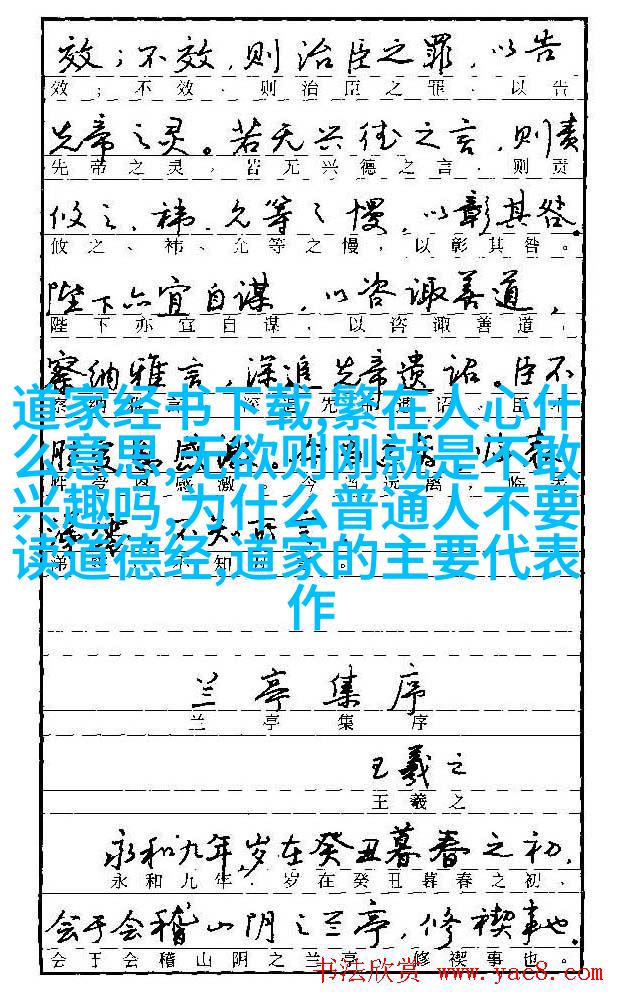 效；不效，则治臣之罪，以告
效；不效，则治臣之罪，以告
先帝之灵。若无兴德之言，则责
先帝之灵，若无兴德之言，则责
攸之、祎、允等之慢，以彰其咎。
攸之、祎、允等之慢，以彰其咎。
陛下亦宜自谋，以咨诹善道，
陛下亦宜自谋，以咨诹善道，
察纳雅言，深追先帝遗诏。臣不
道家经书下载,繁在人心什
么意思,无欲则刚就是不敢
兴趣吗,为什么普通人不要
读道德经,道家的主要代表
作
兰亭集序
兰亭集序
王羲之
王羲之
永和九年,岁在癸丑暮春之初,
永和九年，岁在癸丑暮春之初，
会于会稽山阴之兰亭，修禊事也。
会于会稽山阴之兰亭，修禊事也。
书法欣赏 www.yac8.com